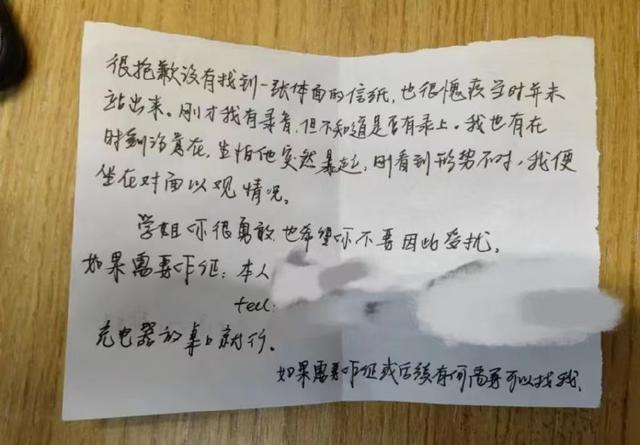 很抱歉没有找到一张体面的信纸,也很愧疚当时并未
站出来。刚才我有录音,但不知道是否有录上。我也有在
时刻注意在,生怕他突然暴起,刚看到形势不对,我便
坐在对面以观情况。
学姐你很勇敢,也希望你不要因此受扰。
如果需要作证:本人
tel:
充电器的桌上就行。
如果需要作证或后续有何需要可以找我.